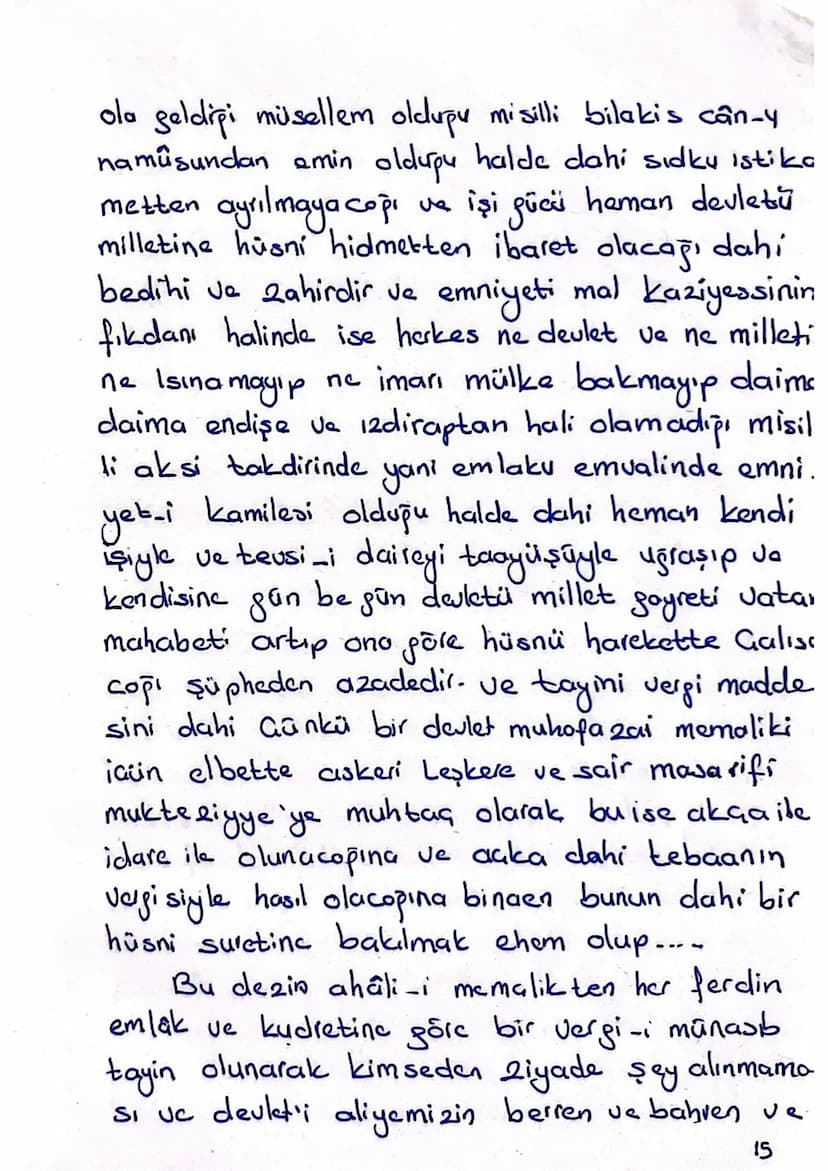 ola geldiği müsellem olduğu misilli bilakis cân-y
namûsundan emin olduğu halde dahi sıdku istika
metten ayrılmayacağı ve işi gücü heman devletü
milletine hüsni hidmetten ibaret olacağı dahi
bedihi ve zahirdir ve emniyeti mal kaziyessinin
fıkdanı halinde ise herkes ne devlet ve ne milleti
ne Isınamayıp ne imarı mülke bakmayıp daima
daima endişe ve ızdiraptan hali olamadığı misil
li aksi takdirinde yani emlaku emvalinde emni.
yet-i kamilesi olduğu halde dahi heman kendi
işiyle ve tevsi-i daireyi taayüşüyle uğraşıp ve
kendisine gün be gün devletü millet gayreti vatan
mahabeti artıp ona göre hüsnü harekette Çalışa
cağı şüpheden azadedir. ve tayini vergi madde
sini dahi Çünkü bir devlet muhofazai memaliki
için elbette askeri Leşkere ve sair masarifi
mukteziyye'ye muhtaç olarak bu ise akça ile
idare ile olunacağına ve açka dahi tebaanın
vergisiyle hasıl olacağına binaen bunun dahi bir
hüsni suretine bakılmak ehem olup....
Bu dezin ahâli-i memalikten her ferdin
emlak ve kudretine göre bir vergi-i münasb
tayin olunarak kimseden ziyade şey alınmama
sı ve devlet'i aliyemizin berren ve bahren ve
15